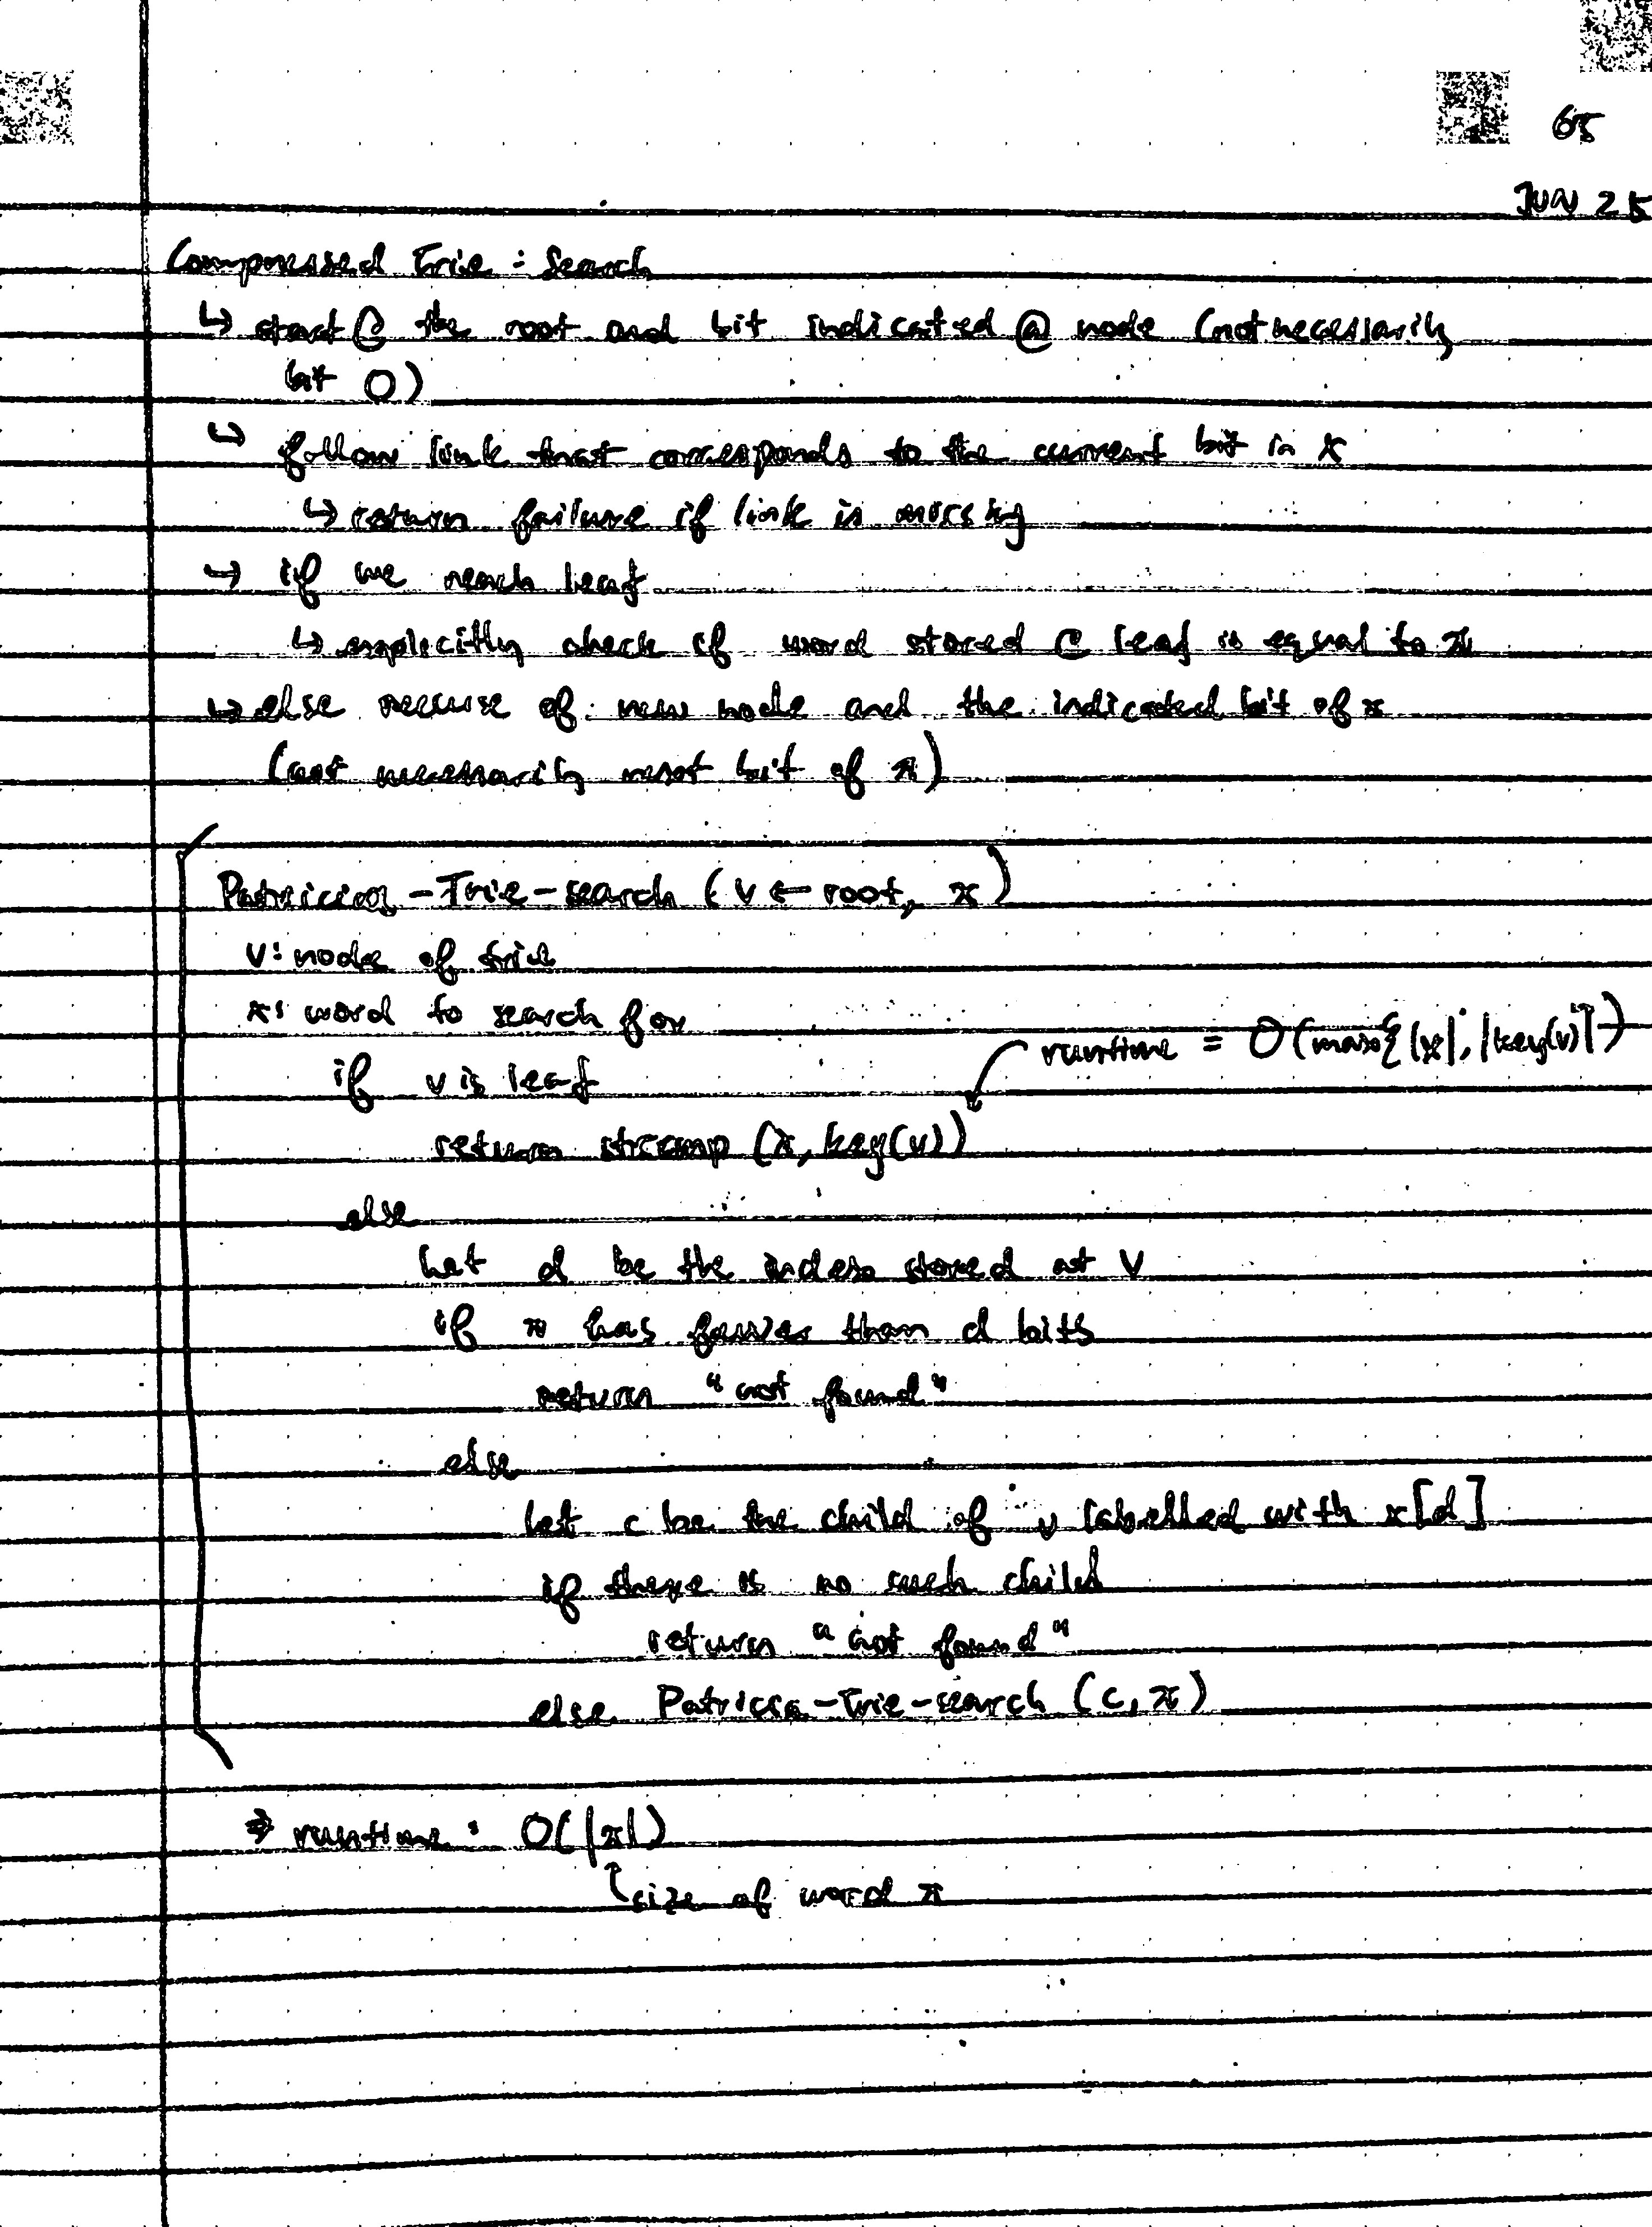 65
JUN 25
Compressed Trie : Search
↳ start @ the root and bit indicated @ node (not necessarily
bit 0)
↳ follow link that corresponds to the current bit in x
↳ return failure if link is missing
↳ if we reach leaf
↳ explicitly check if word stored @ leaf is equal to x
↳ else recurse of new node and the indicated bit of x
(not necessarily next bit of x)
Patricia-Trie-search (v ← root, x)
v: node of trie
x: word to search for
runtime = O(max{|x|, |key(v)|})
if v is leaf
return strcmp (x, key(v))
else
let d be the index stored at v
if x has fewer than d bits
return "not found"
else
let c be the child of v labelled with x[d]
if there is no such child
return "not found"
else Patricia-Trie-search (c, x)
⇒ runtime : O(|x|)
size of word x